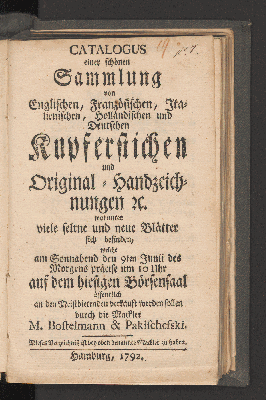 CATALOGUS
einer schönen
Sammlung
von
Englischen, Französischen, Ita-
lienischen, Holländischen und
Deutschen
Kupferstichen
und
Original-Handzeich-
nungen ꝛc.
worunter
viele seltne und neue Blätter
sich befinden,
welche
am Sonnabend den 9ten Junii des
Morgens präcise um 10 Uhr
auf dem hiesigen Börsensaal
öffentlich
an den Meistbietenden verkauft werden sollen
durch die Mackler
M. Bostelmann & Pakischefski.
Dieses Verzeichniß ist bey oben benannte Mackler zu haben.
Hamburg, 1792.